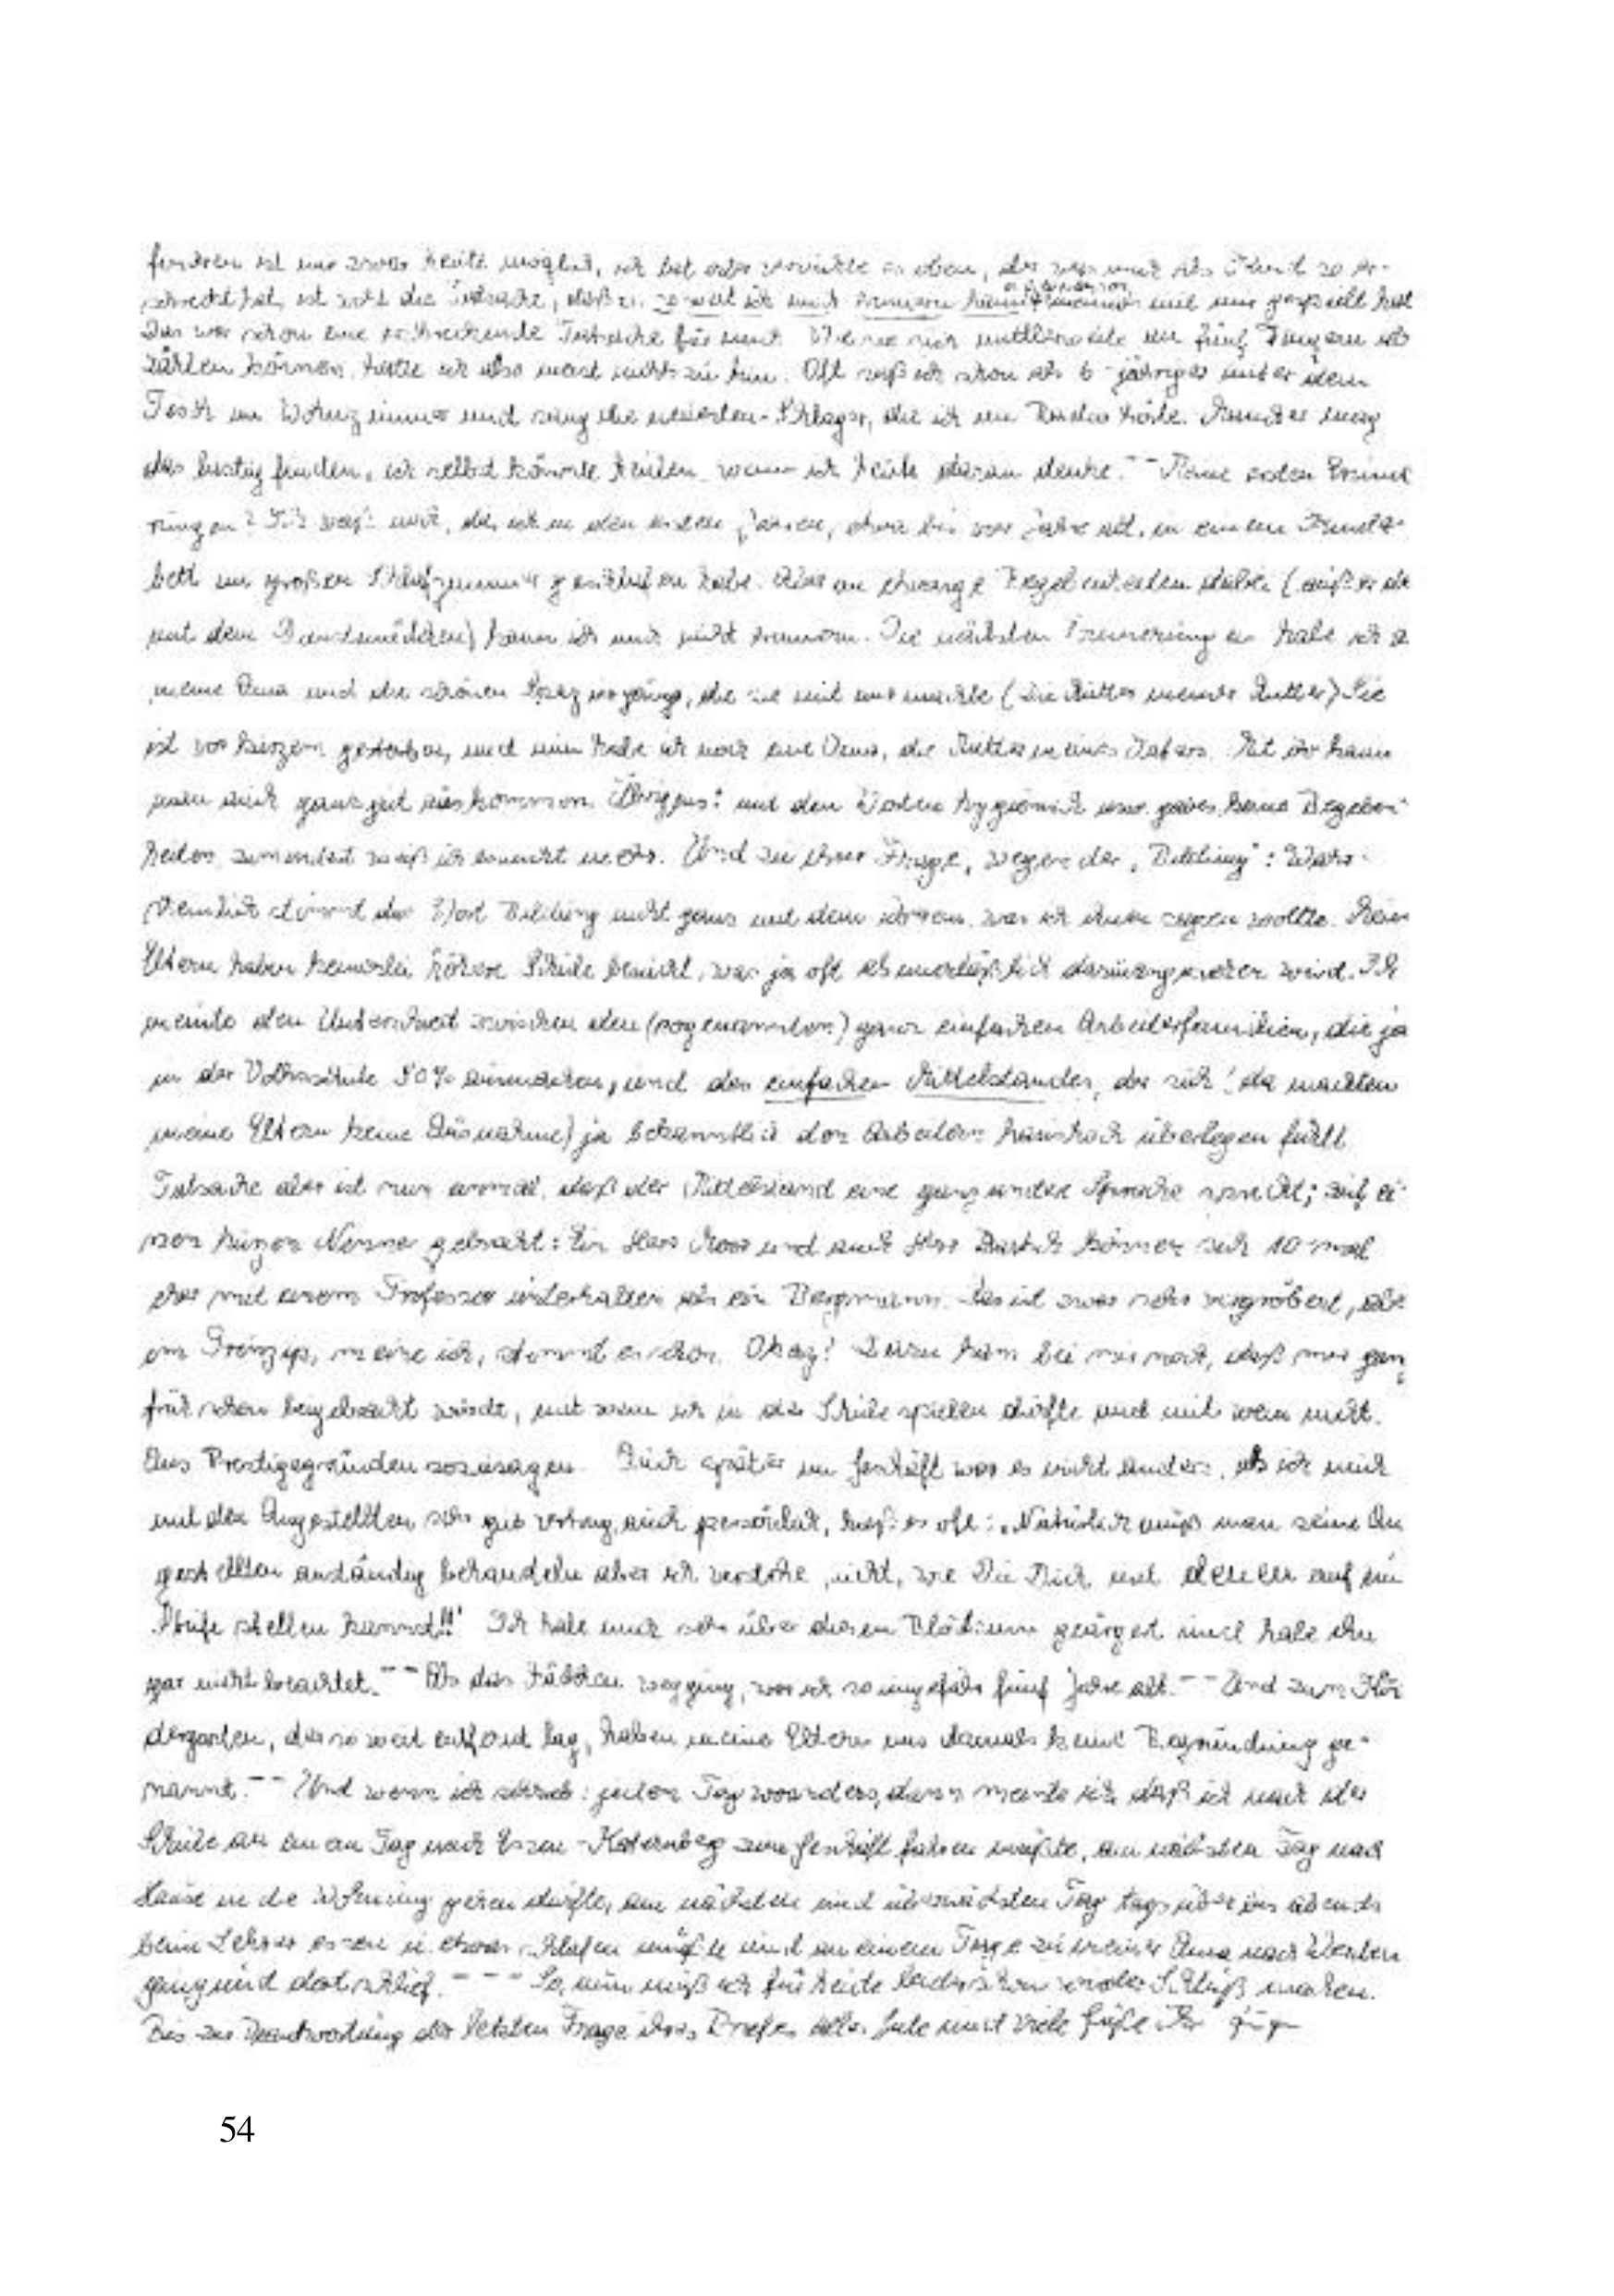 ist nur zwar heute möglich, ich
hat, ist wohl die Tatsache, daß er, so weit ich mich erinnern kann, niemals mit mir gespielt hat
Das war schon eine erschreckende Tatsache für mich. Wie sie sich mittlerweile an fünf Fingern ab
zählen können, hatte ich also meist nichts zu tun. Oft saß ich schon als 6-jähriger unter dem
Tisch im Wohnzimmer und sang die neuesten Schlager, die ich im Radio hörte. Mancher mag
das lustig finden, ich selbst könnte heulen, wenn ich heute daran denke. -- Meine ersten Erinne
rungen? Ich weiß noch, daß ich in den ersten Jahren, etwa bis vier Jahre alt, in einem Kinder-
bett im großen Schlafzimmer geschlafen habe. Aber an etwaige Begebenheiten dabei (außer die
mit dem Dienstmädchen) kann ich mich nicht erinnern. Die nächsten Erinnerungen habe ich a
meine Oma und die schönen Spaziergänge, die sie mit mir machte (Die Mutter meiner Mutter) Sie
ist vor kurzem gestorben, und nun habe ich noch eine Oma, die Mutter meines Vaters. Mit ihr kann
man auch ganz gut auskommen. Übrigens: mit den Worten hygienisch usw. gab es keine Begeben-
heiten, zumindest weiß ich es nicht mehr. Und zu ihrer Frage, wegen der "Bildung": Wahr-
scheinlich stimmt das Wort Bildung nicht ganz mit dem überein, was ich ihnen sagen wollte. Mein
Eltern haben keinerlei höhere Schule besucht, was ja oft als unerläßlich dazu angesehen wird. Ich
meinte den Unterschied zwischen den (sogenannten) ganz einfachen Arbeiterfamilien, die ja
in der Volksschule 90% ausmachen, und des einfachen Mittelstandes, der sich (da machten
meine Eltern keine Ausnahme) ja bekanntlich den Arbeitern haushoch überlegen fühlt
Tatsache aber ist nun einmal, daß der Mittelstand eine ganz andere Sprache spricht; auf ei-
nen kurzen Nenner gebracht: Ein Herr Moor und auch Herr Bartsch können sich 10 mal
eher mit einem Professor unterhalten als ein Bergmann. Das ist zwar sehr vergröbert, aber
im Prinzip, meine ich, stimmt es schon. Okay! Dazu kam bei mir noch, daß mir ganz
früh schon beigebracht wurde, mit wem ich in der Schule spielen durfte und mit wem nicht.
Aus Prestigegründen sozusagen. Auch später im Geschäft war es nicht anders, als ich mich
mit den Angestellten sehr gut vertrug, auch persönlich, hieß es oft: "Natürlich muß man seine An
gestellten anständig behandeln aber ich verstehe nicht, wie Du Dich mit denen auf ein
Stufe stellen kannst!!" Ich habe mich sehr über diesen Blödsinn geärgert und habe ihn
gar nicht beachtet. -- Als das Mädchen wegging, war ich so ungefähr fünf Jahre alt. -- Und zum Kin
dergarten, der so weit entfernt lag, haben meine Eltern uns damals keine Begründung ge-
nannt. -- Und wenn ich schrieb: jeden Tag woanders, dann meinte ich, daß ich nach der
Schule an einem Tag nach Essen-Katernberg zum Geschäft fahren mußte, am nächsten Tag nach
Hause in die Wohnung gehen durfte, am nächsten und übernächsten Tag tagsüber bis abends
beim Lehrer essen u. etwas schlafen mußte und an einem Tage zu meiner Oma nach Werden
ging und dort schlief. --- So, nun muß ich für heute leider schon wieder Schluß machen.
Bis zur Beantwortung der letzten Frage ihres Briefes alles Gute und viele Grüße Ihr Jürgen
54